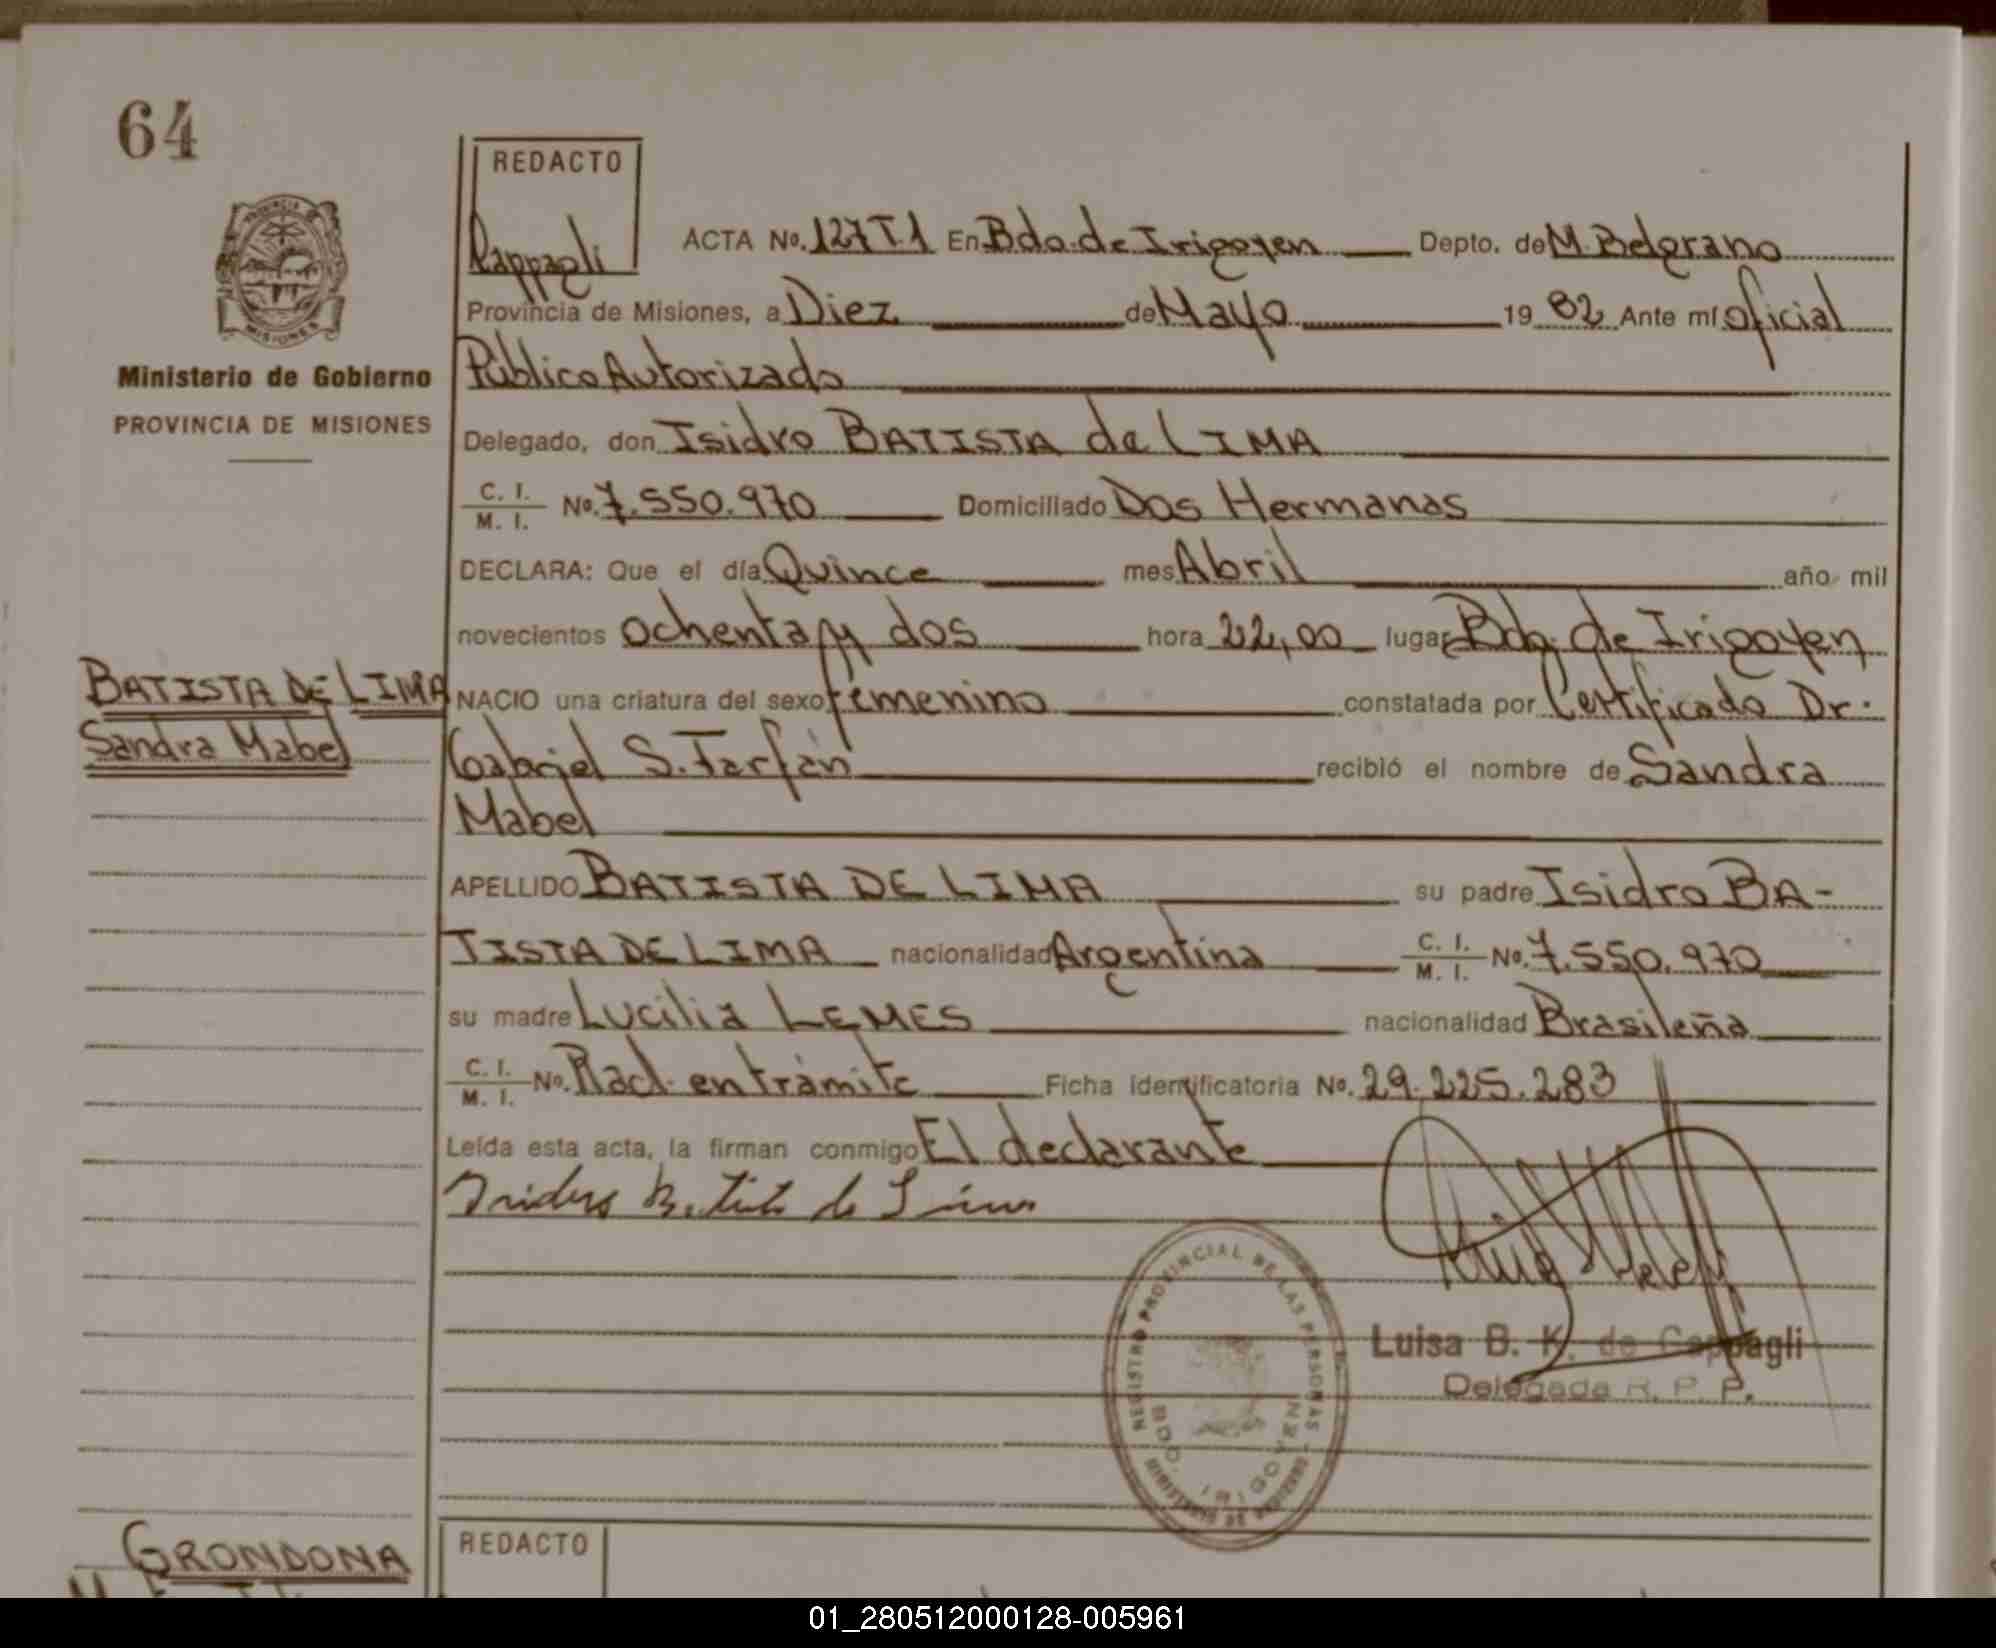 64
REDACTO
Cappagli
ACTA No. 127 T.1 En Bdo. de Irigoyen Depto. de M. Belgrano
Provincia de Misiones, a Diez de Mayo 19 82 Ante mí oficial
Público Autorizado
Delegado, don Isidro BATISTA de LIMA
C. I. / M. I. No. 7.550.970 Domiciliado Dos Hermanas
DECLARA: Que el día Quince mes Abril año mil
novecientos ochenta y dos hora 22,00 lugar Bdo. de Irigoyen
NACIO una criatura del sexo femenino constatada por Certificado Dr.
Gabriel S. Farfán recibió el nombre de Sandra
Mabel
APELLIDO BATISTA DE LIMA su padre Isidro BA-
TISTA DE LIMA nacionalidad Argentina C. I. / M. I. No. 7.550.970
su madre Lucilia LEMES nacionalidad Brasileña
C. I. / M. I. No. Rad. en trámite Ficha identificatoria No. 29.225.283
Leída esta acta, la firman conmigo El declarante
Isidro Batista de Lima
Luisa B. K. de Cappagli
Delegada R. P. P.
REGISTRO PROVINCIAL DE LAS PERSONAS
BDO. IRIGOYEN
PROVINCIA DE
MISIONES
Ministerio de Gobierno
PROVINCIA DE MISIONES
BATISTA DE LIMA
Sandra Mabel
GRONDONA
REDACTO
01_280512000128-005961